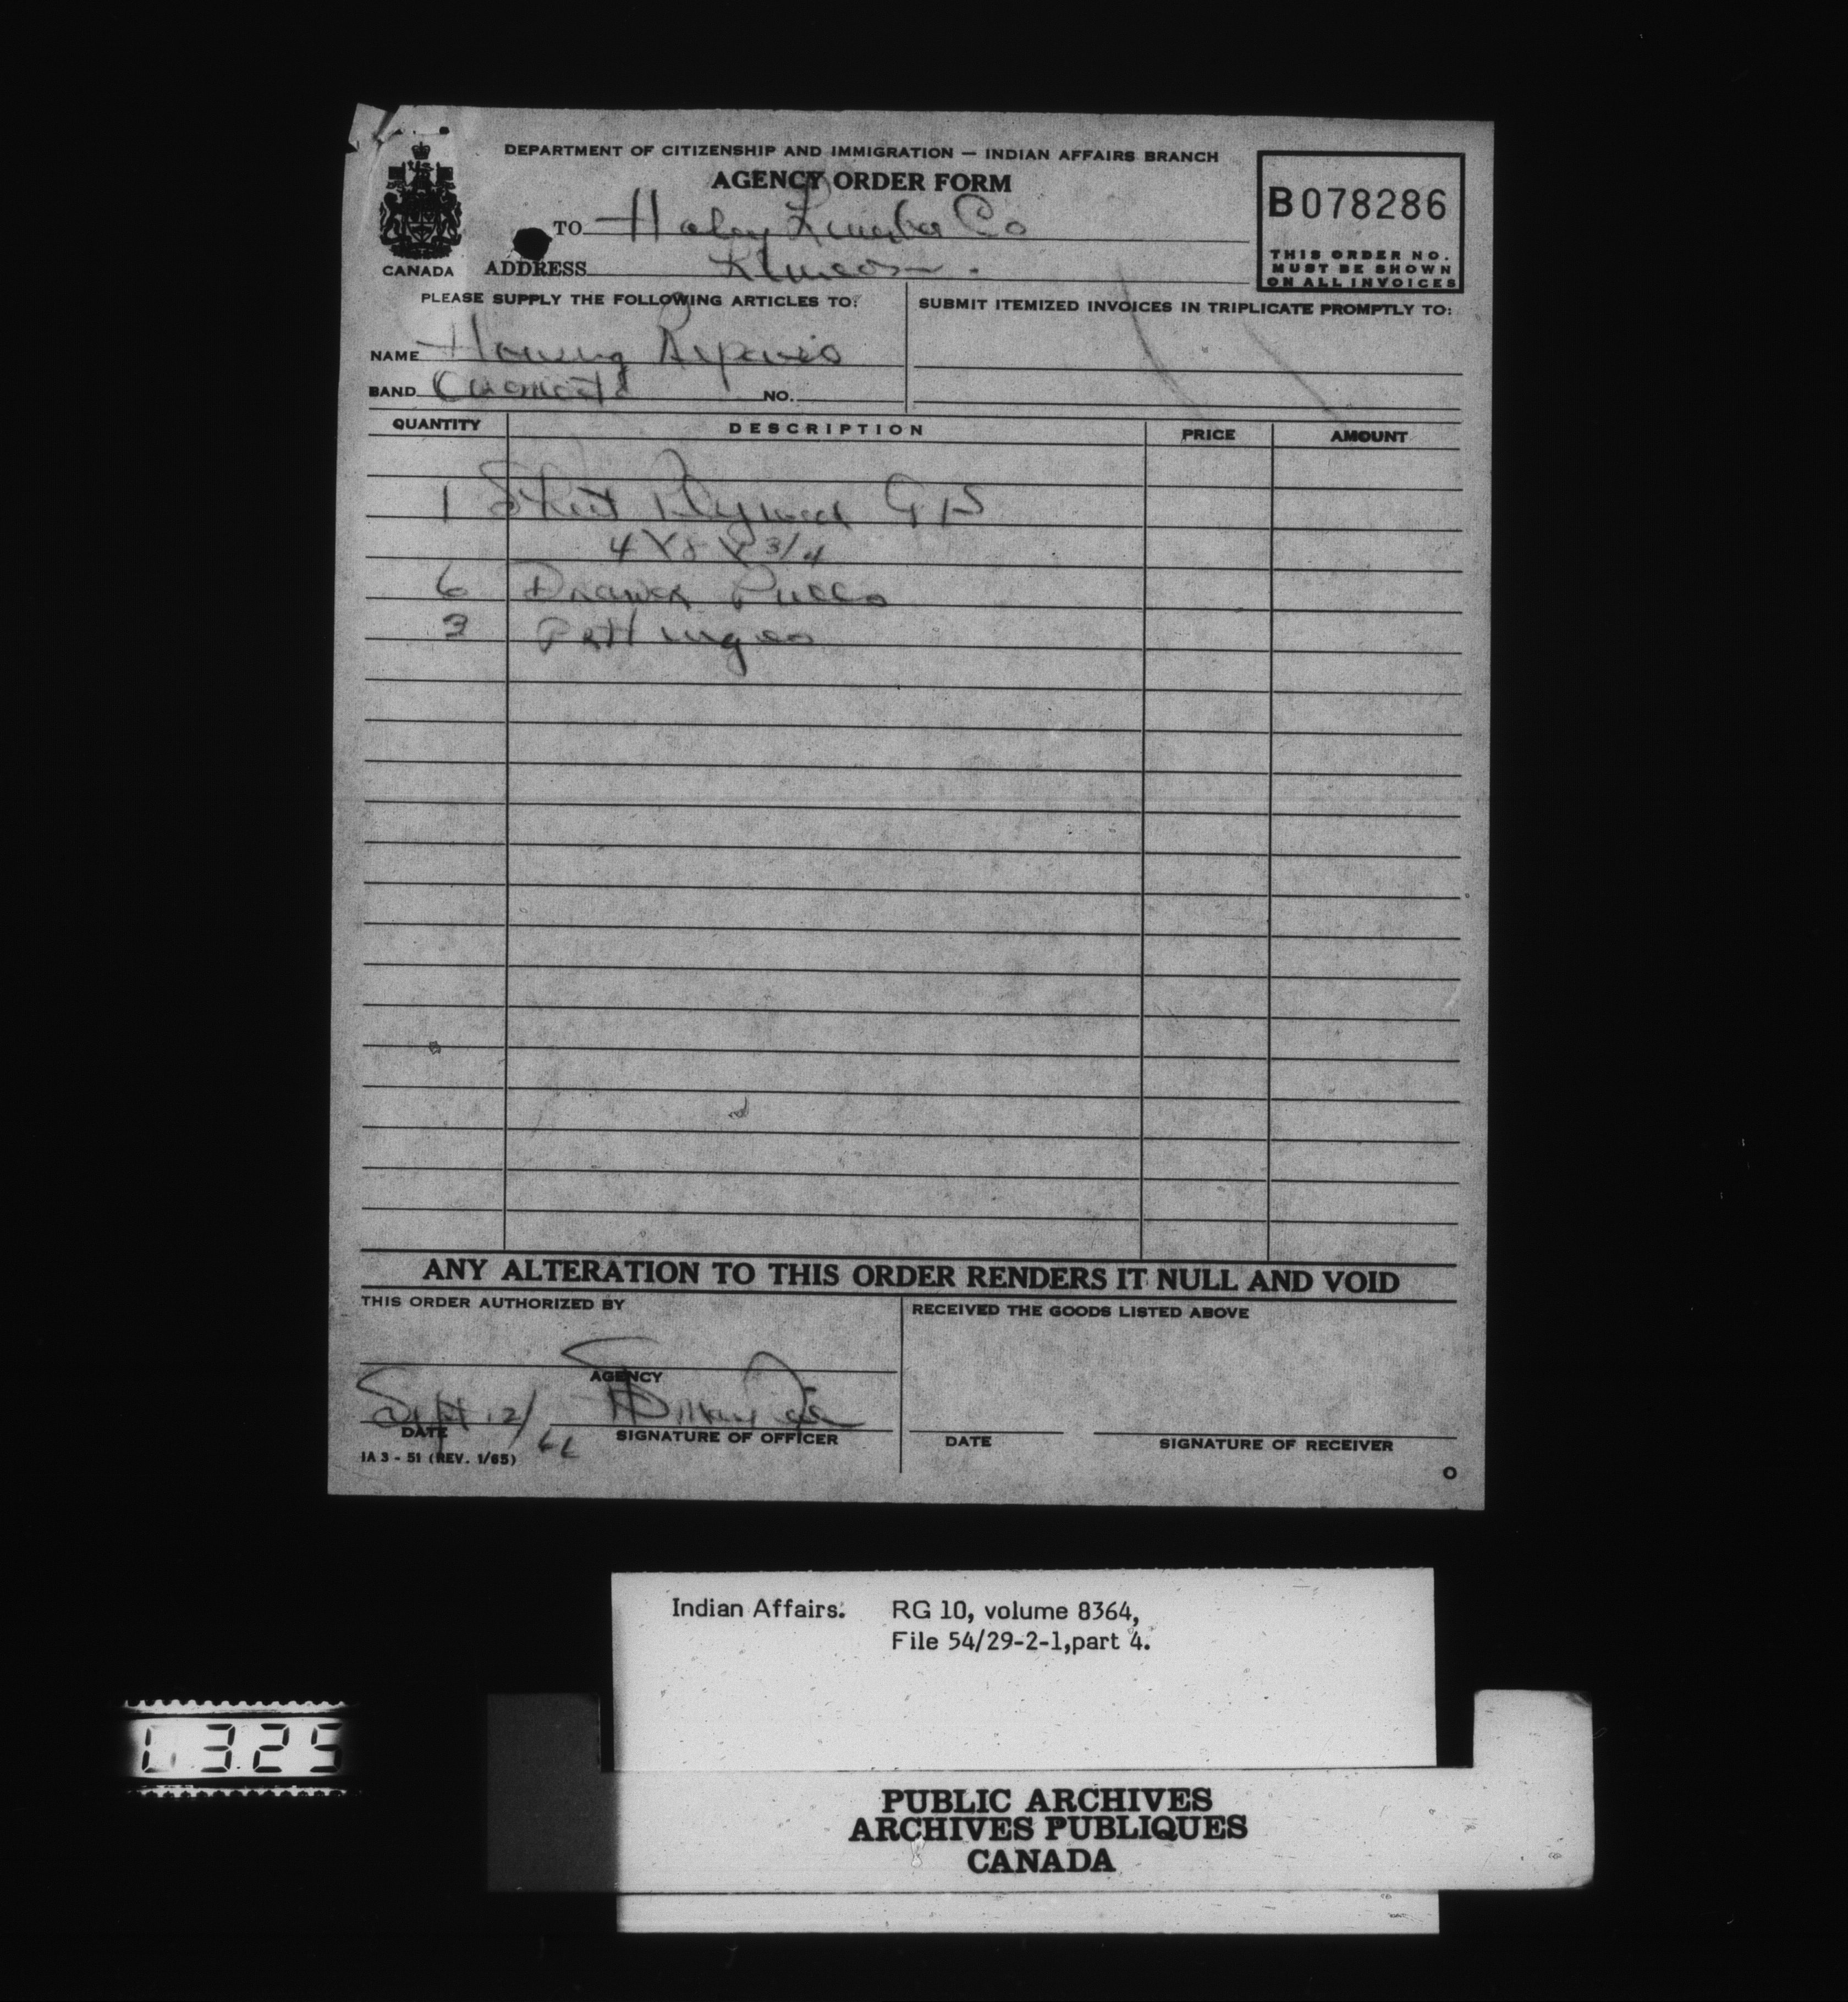 DEPARTMENT OF CITIZENSHIP AND IMMIGRATION — INDIAN AFFAIRS BRANCH
AGENCY ORDER FORM
B078286
THIS ORDER NO.
MUST BE SHOWN
ON ALL INVOICES
CANADA
TO Haley Lumber Co
ADDRESS
PLEASE SUPPLY THE FOLLOWING ARTICLES TO:
SUBMIT ITEMIZED INVOICES IN TRIPLICATE PROMPTLY TO:
NAME Housing Repairs
BAND NO.
QUANTITY DESCRIPTION PRICE AMOUNT
1 Sheet Plywood G1S
4 X 8 X 3/4
6 Drawer Pulls
3 Pr Hinges
ANY ALTERATION TO THIS ORDER RENDERS IT NULL AND VOID
THIS ORDER AUTHORIZED BY
RECEIVED THE GOODS LISTED ABOVE
AGENCY
Sept 12/66
DATE SIGNATURE OF OFFICER
DATE SIGNATURE OF RECEIVER
IA 3 - 51 (REV. 1/65)
Indian Affairs. RG 10, volume 8364,
File 54/29-2-1,part 4.
325
PUBLIC ARCHIVES
ARCHIVES PUBLIQUES
CANADA